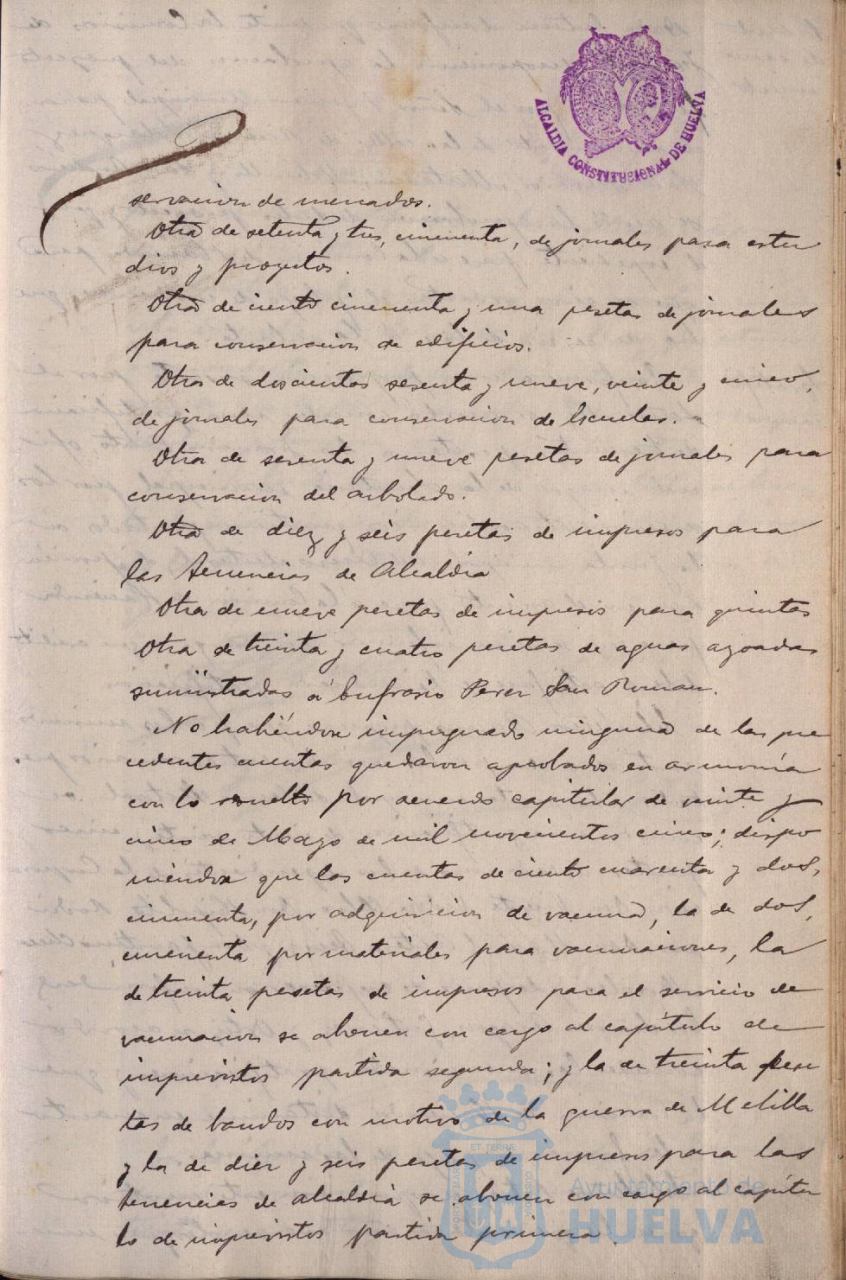 ALCALDIA CONSTITUCIONAL DE HUELVA
servacion de mercados.
Otra de setenta y tres, cincuenta, de jornales para estu
dios y proyectos.
Otra de ciento cincuenta y una pesetas de jornales
para conservacion de edificios.
Otra de doscientas sesenta y nueve, veinte y cinco,
de jornales para conservacion de Escuelas.
Otra de sesenta y nueve pesetas de jornales para
conservacion del arbolado.
Otra de diez y seis pesetas de impresos para
las tenencias de Alcaldia
Otra de nueve pesetas de impresos para quintas
Otra de treinta y cuatro pesetas de aguas azoadas
suministradas á Eufrasio Perez San Roman.
No habiéndose impugnado ninguna de las pre
cedentes cuentas quedaron aprobadas en armonía
con lo resuelto por acuerdo capitular de veinte y
cinco de Mayo de mil novecientos cinco; dispo
niéndose que las cuentas de ciento cuarenta y dos,
cincuenta, por adquisicion de vacuna, la de dos,
cincuenta por materiales para vacunaciones, la
de treinta pesetas de impresos para el servicio de
vacunacion se abonen con cargo al capítulo de
imprevistos partida segunda; y la de treinta pese
tas de bandos con motivo de la guerra de Melilla
y la de diez y seis pesetas de impresos para las
tenencias de alcaldia se abonen con cargo al capítu
lo de imprevistos partida primera.
Ayuntamiento de
HUELVA